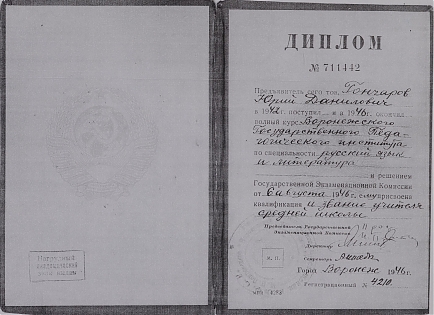 ДИПЛОМ
№ 711442
Предъявитель сего тов. Гончаров
Юрий Данилович
в 1942г. поступил и в 1946г. окончил
полный курс Воронежского
Государственного Педа-
гогического института
по специальности русский язык
и литература
и решением
Государственной Экзаменационной Комиссии
от 6 августа 1946г. присвоена
квалификация и звание учителя
средней школы
Председатель Государственной
Экзаменационной Комиссии
Директор
М. П.
Секретарь
Город Воронеж 1946г.
Регистрационный № 4210